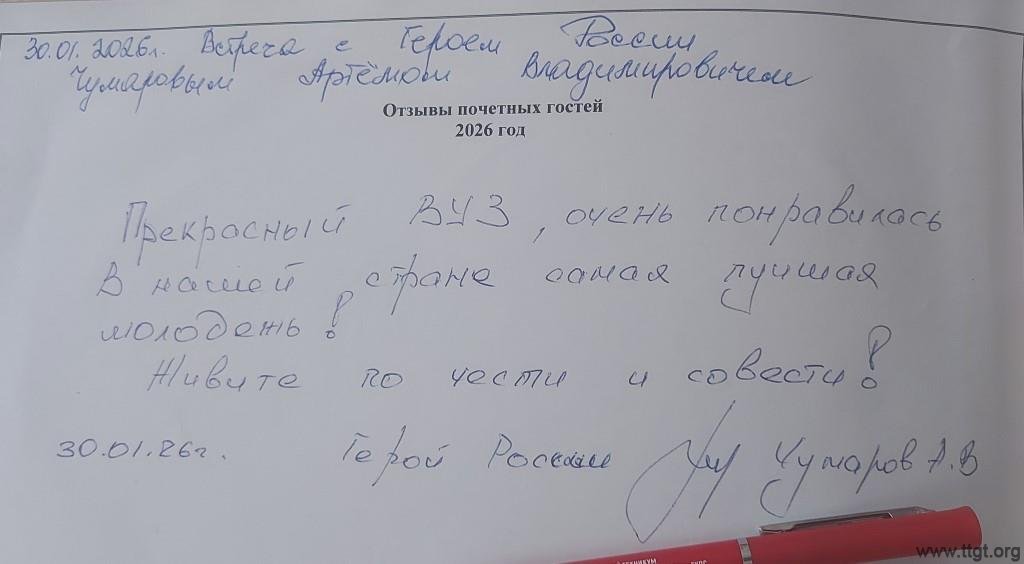 30.01.2026г. Встреча с Героем России
Чумаровым Артёмом Владимировичем
Отзывы почетных гостей
2026 год
Прекрасный ВУЗ, очень понравилась
В нашей стране самая лучшая
молодежь!
Живите по чести и совести!
30.01.26г. Герой России Чумаров А.В
www.ttgt.org